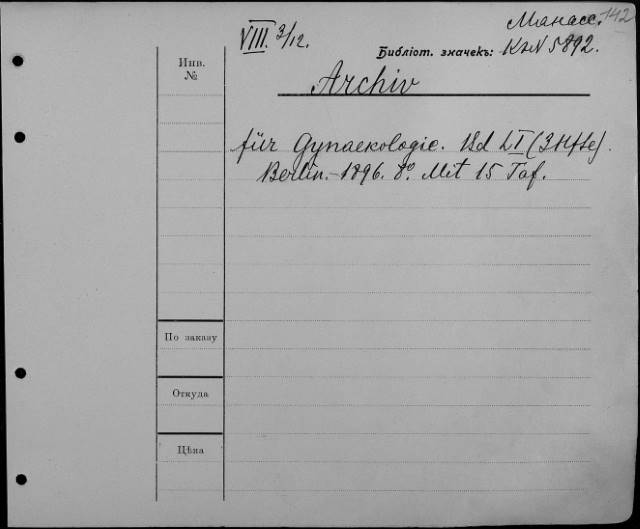 142
VIII. 3/12.
Манасс.
Библіот. значекъ: К⁠н№ 5892.
Инв.
№
Archiv
für Gynaekologie. Bd LI (3 Hfte).
Berlin.-1896. 8º. Mit 15 Taf.
По заказу
Откуда
Цѣна